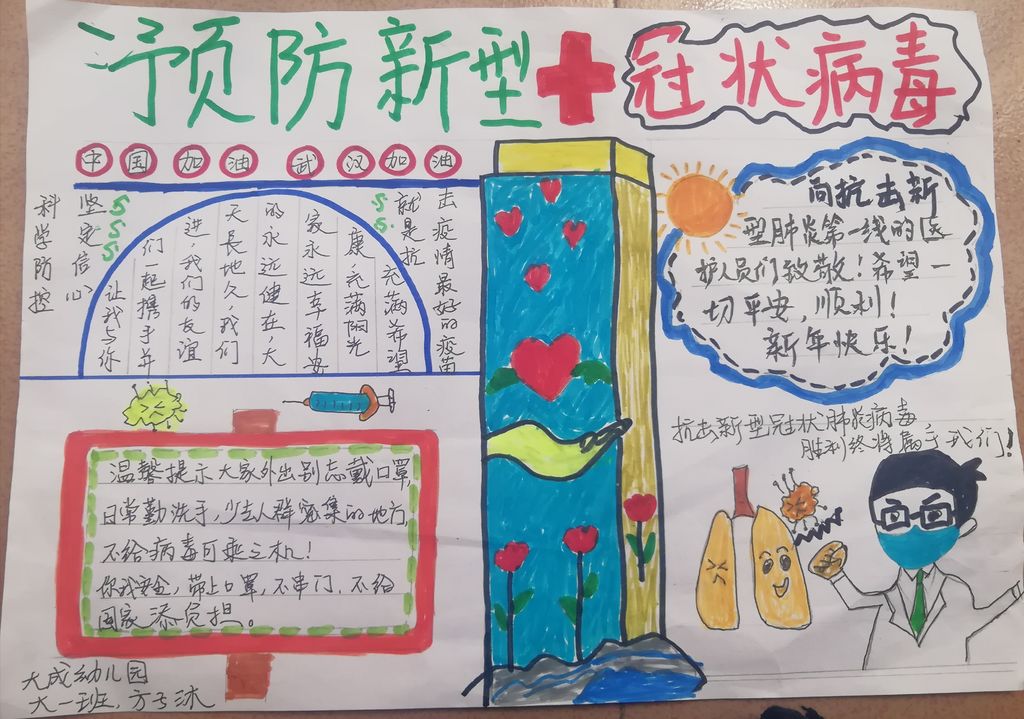 预防新型冠状病毒
中国加油 武汉加油
科学防控
坚定信心
让我与你
们一起携手并
进,我们的友谊
天长地久,我们
的永远健在,大
家永远幸福安
康,充满阳光
充满希望
就是抗
去疫情最好的疫苗
向抗去新
型肺炎第一线的医
护人员们致敬!希望一
切平安,顺利!
新年快乐!
温馨提示大家外出别忘戴口罩
日常勤洗手,少去人群密集的地方
不给病毒可乘之机!
你我安全,带上口罩,不串门,不给
国家添负担。
抗去新型冠状肺炎病毒
胜利终将属于我们!
大成幼儿园
大一班,方